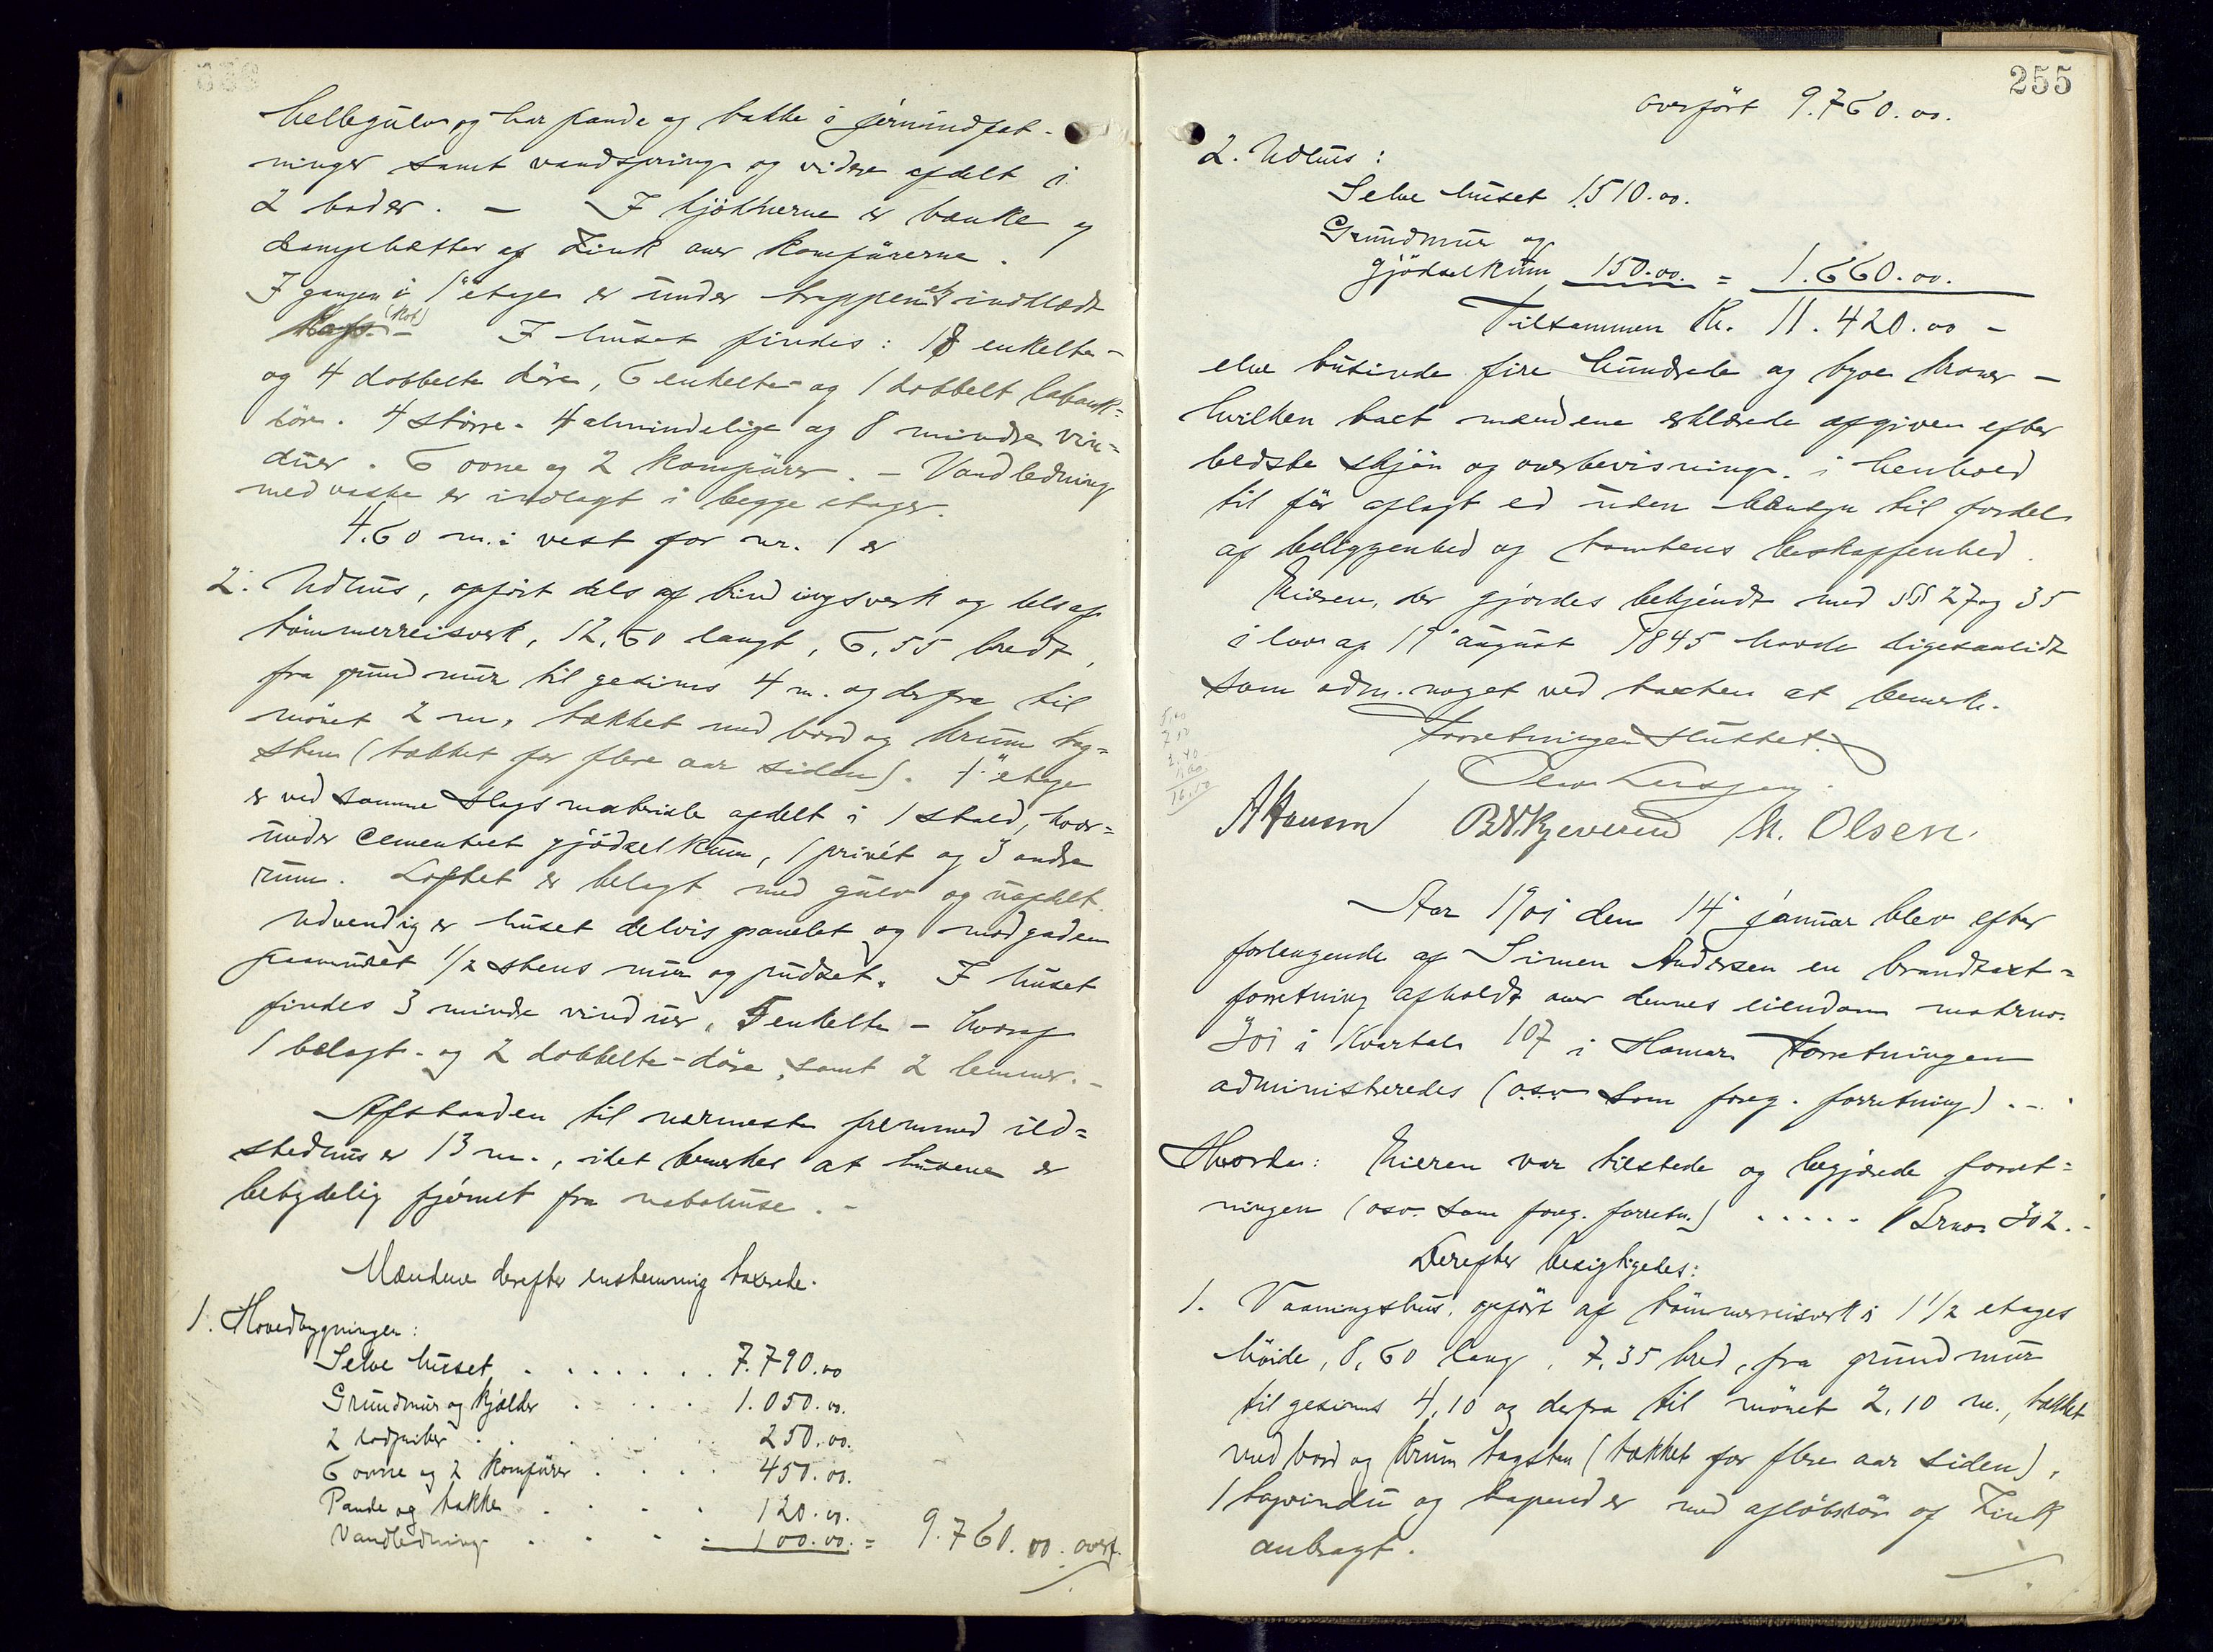 hellegulv og har pande og takke i jernindfat-
ninger samt vandspring og videre afdelt i
2 boder. — I kjökkerne er bænke og
dampehætter af Zink over komfürerne.
I gangen i 1' etage er under trappen et indklædt
(kot) — I huset findes: 18 enkelte-
og 4 dobbelte döre, 6 enkelte- og 1 dobbelt
dör. 4 större- 4 almindelige og 8 mindre vin=
duer. 6 ovne og 2 komfürer. — Vandledning
med vaske er indlagt i begge etager.
4.60 m. i vest for nr. 1 er
2. Udhus, opfört dels af bindingsverk og dels af
tömmerreisverk, 12,60 langt, 6,55 bredt,
fra grundmur til gesims 4 m. og derfra til
mönet 2 m., tækket med bord og krum tag=
sten (tækket for flere aar siden). 1' etage
er ved samme slags materiale afdelt i 1 stald, hvor=
under cementeret gjödselkum, 1 privét og 3 andre
rum. Loftet er belagt med gulv og uafdelt.
Udvendig er huset delvis panelet og mod gaden
paamuret 1/2 stens mur og pudset. I huset
findes 3 mindre vinduer, 5 enkelte- hvoraf
1 belagt- og 2 dobbelte-döre, samt 2 lemmer. —
Afstanden til nærmeste fremmed ild=
stedhus er 13 m., idet bemerkes at husene er
betydelig fjernet fra nabohuse. —
Mændene derefter enstemmig taxerede.
1. Hovedbygningen:
Selve huset . . . . . . . 7.790.00
Grundmur og kjælder . . . . 1.050.00.
2 . . . . . . 250.00.
6 ovne og 2 komfürer . . . . 450.00.
Pande og takke . . . . 120.00.
Vandledning . . . . 100.00. = 9.760.00. overf.
255
overfört 9.760.00.
2. Udhus:
Selve huset 1510.00.
Grundmur og
gjödselkum 150.00. = 1.660.00.
Tilsammen Kr. 11.420.00 —
elve tusinde fire hundrede og tyve kroner —
hvilken taxt mændene erklærede afgiven efter
bedste skjön og overbevisning i henhold
til för aflagt ed uden hensyn til fordel
af beliggenhed og tomtens beskaffenhed.
Eieren, der gjordes bekjendt med §§ 27 og 35
i lov af 19' august 1845 havde ligesaalidt
som adm. noget ved taxten at bemerke.
Forretningen sluttet.
A Hansen B.N. Kjeverud M. Olsen.
Aar 1901 den 14' januar blev efter
forlangende af Simen Andersen en brandtaxt=
forretning afholdt over dennes eiendom matrno.
301 i Kvartal 107 i Hamar. Forretningen
administreredes (o.s.v. som foreg. forretning). —
Hvorda: Eieren var tilstede og begjærede forret=
ningen (osv. som foreg. forretn.) . . . . . Brno. 302. —
Derefter besigtigedes:
1. Vaaningshus, opfört af tömmerreisverk i 1 1/2 etages
höide, 8,60 lang, 7,35 bred, fra grundmur
til gesims 4,10 og derfra til mönet 2,10 m., tækket
med bord og krum tagsten (tækket for flere aar siden),
1 tagvindu og tagrender med aflöbsrör af Zink
anbragt.